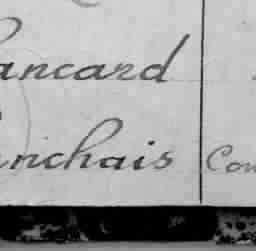 ancard
nchais Con